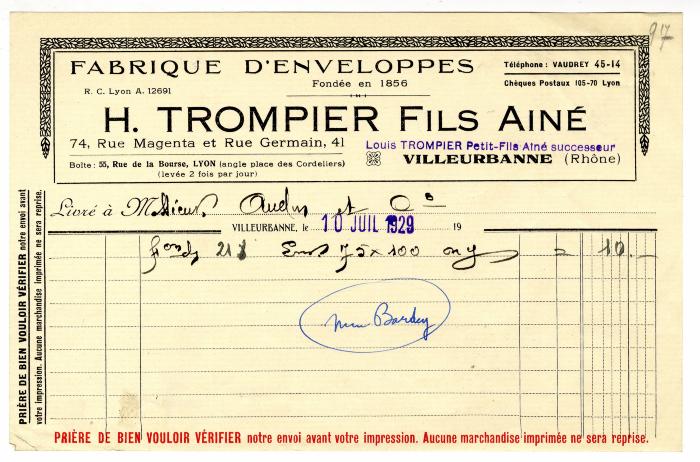 97
FABRIQUE D'ENVELOPPES
Fondée en 1856
R. C. Lyon A. 12691
Téléphone : VAUDREY 45-14
Chèques Postaux 105-70 Lyon
H. TROMPIER FILS AINÉ
74, Rue Magenta et Rue Germain, 41
Louis TROMPIER Petit-Fils Ainé successeur
VILLEURBANNE (Rhône)
Boîte : 55, Rue de la Bourse, LYON (angle place des Cordeliers)
(levée 2 fois par jour)
Livré à Messieurs Audin et Cie
VILLEURBANNE, le 10 JUIL 1929 19
75 x 100 = 10.-
Bardey
PRIÈRE DE BIEN VOULOIR VÉRIFIER notre envoi avant
votre impression. Aucune marchandise imprimée ne sera reprise.
PRIÈRE DE BIEN VOULOIR VÉRIFIER notre envoi avant votre impression. Aucune marchandise imprimée ne sera reprise.